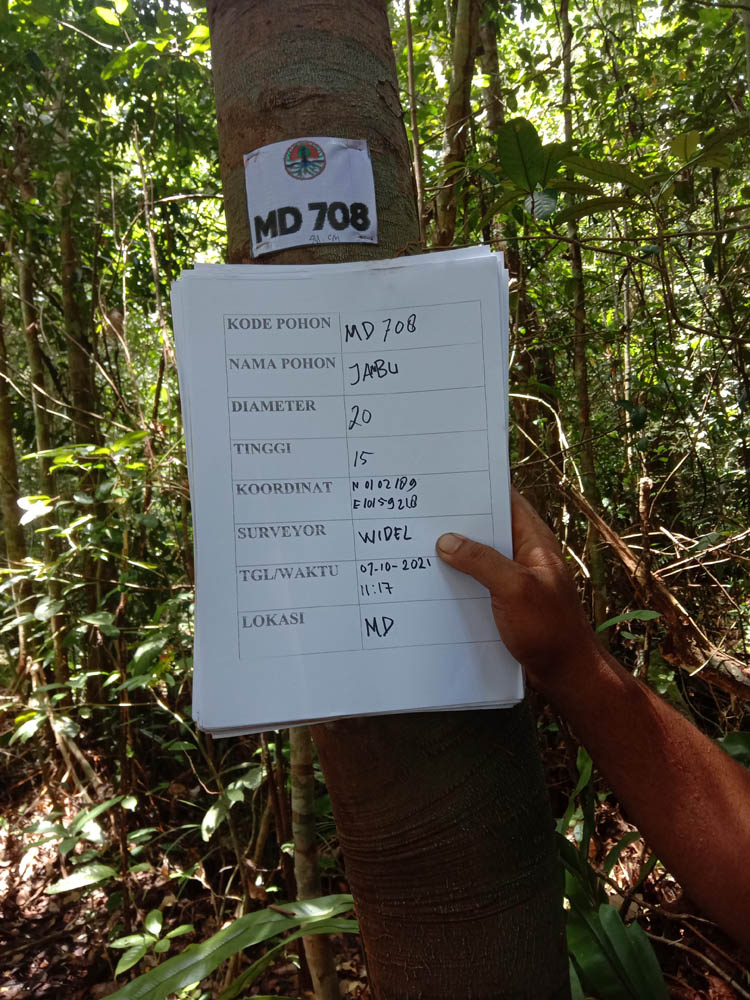 MD 708
KODE POHON MD 708
NAMA POHON JAMBU
DIAMETER 20
TINGGI 15
KOORDINAT N 0102189
E10159218
SURVEYOR WIDEL
TGL/WAKTU 07-10-2021
11:17
LOKASI MD